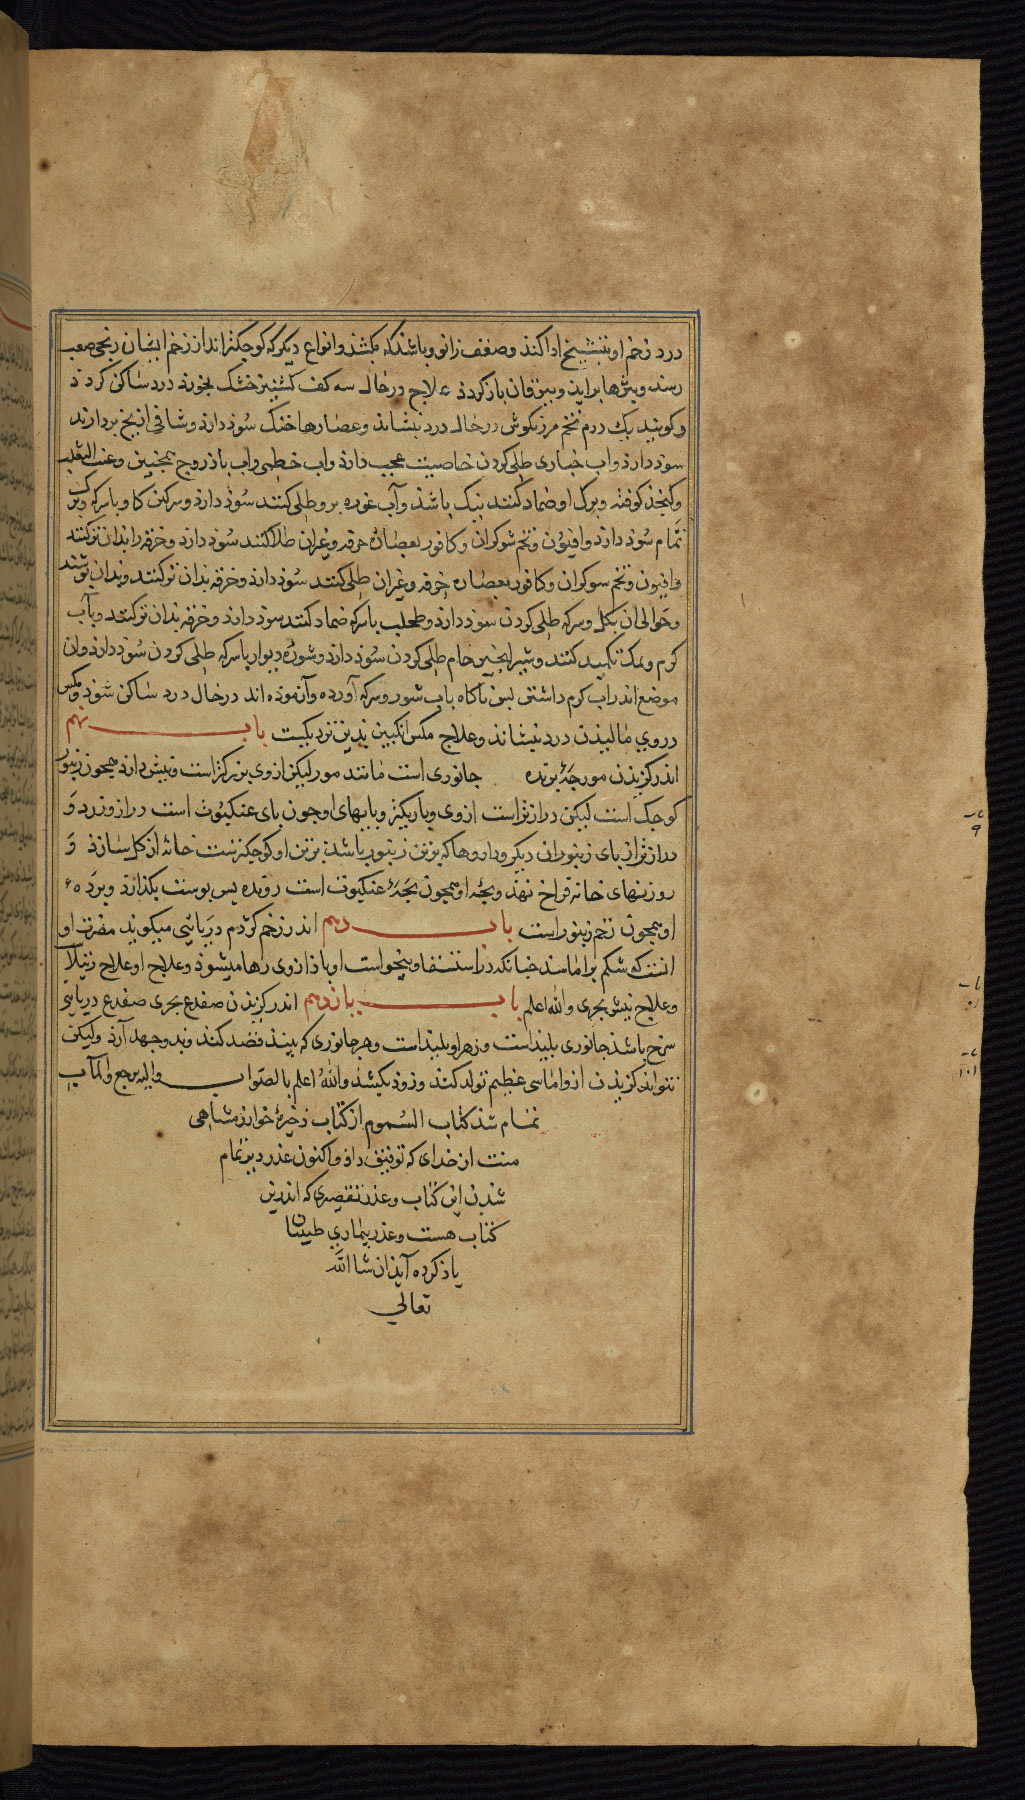 درد زخم او بتشنیخ ادا کند و ضعف زانو و باشد که بکشد و انواع دیگر که کوچکتراند از زخم ایشان رنجی صعب
رسد و بثرها براید و بیزقان باز کردد علاج درحال سه کف کشنیز خشک بخورند درد ساکن کردد
و کویند یک درم تخم مرزنکوش درحال درد بنشاند و عصارها خنک سوذ دارد و شافی از یخ بردارند
سوذ دارد و اب خیاری طلی کردن خاصیت عجیب دارد و اب خطمی و اب باذروج همچنین و عنب الثعلب
و کنجد کوفته و برک او ضماد کنند نیک باشد و آب غوره برو طلی کنند سوذ دارد و سرکین کاو با سرکه
تمام سوذ دارد و افیون و تخم شوکران و کافور بعصاره خرفه و غیران طلا کنند سوذ دارد و خرقه را بدان تر کنند
و افیون و تخم سوکران و کافور بعصاره خرفه و غیران طلی کنند سوذ دارد و خرقه بدان تر کنند و بدان پوشند
و حوالی ان بکل و سرکه طلی کردن سوذ دارد و طحلب با سرکه ضماد کنند سوذ دارد و خرقه بدان تر کنند و بآب
کرم و نمک تکمید کنند و شیر انجیر خام طلی کردن سوذ دارد و شوره دیوار با سرکه طلی کردن سوذ دارد و ان
موضع اندر اب کرم داشتن پس ناکاه باب شور و سرکه آورده و آزموده اند درحال درد ساکن شوذ و مکس
در وی مالیدن درد بنشاند و علاج مکس انکبین بدین نزدیکیست باب نهم
اندر کزیدن مورجهٔ پرنده جانوری است مانند مور لیکن از وی بزرکتر است و نیش دارد همچون زنبور
کوچک است لیکن درازتر است از وی و باریکتر و پایهای او چون پای عنکبوت است دراز و زرد و
درازتر از پای زنبوران دیکر و داروها که بزین زنبور باشد بزین او کوچکترست خانه از کل سازد و
روزنهای خانه فراخ نهد و بچه او همچون بچهٔ عنکبوت است پس پوست بکذارد و پرد
او همچون زخم زنبور است باب دهم اندر زخم کژدم دریائی میکویند مضرت او
انست که شکم براماسد چنانکه در استسقا و بادها از وی رها میشود و علاج او علاج رتیلا
و علاج نیش بحری والله اعلم باب یازدهم اندر کزیدن ضفدع بحری ضفدع دریائی
سرخ باشد جانوری بلید است و زهر او بلید است و هر جانوری که بیند قصد کند و بدو جهد آرد و لیکن
نتواند کزیدن از و اماسی عظیم تولد کند و زود بکشد والله اعلم بالصواب و الیه مرجع والمآب
تمام شد کتاب السموم از کتاب ذخیرهٔ خوارزمشاهی
منت ان خدای که توفیق داد و اکنون عذر دیر تمام
شدن این کتاب و عذر تقصیری که اندرین
کتاب هست و عذر بیماری طبیبان
یاد کرده آید ان شا الله
تعالی